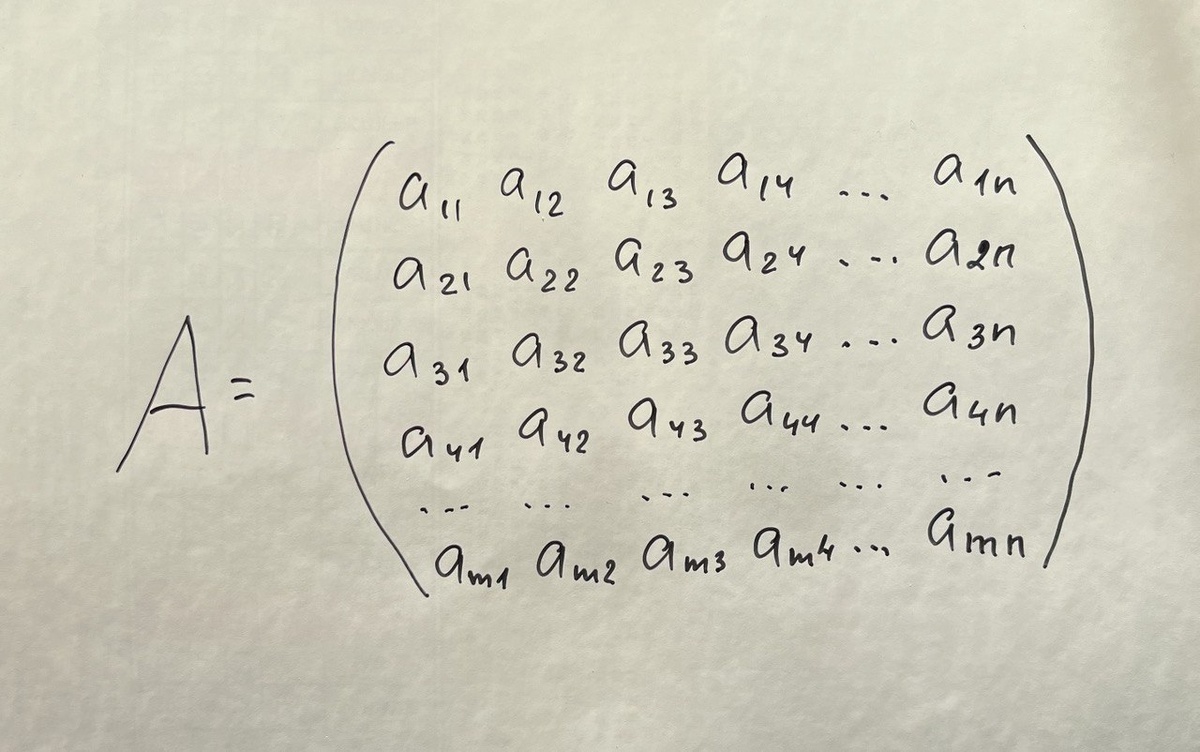 a₁₁ a₁₂ a₁₃ a₁₄ ... a₁ₙ
a₂₁ a₂₂ a₂₃ a₂₄ ... a₂ₙ
a₃₁ a₃₂ a₃₃ a₃₄ ... a₃ₙ
A =
a₄₁ a₄₂ a₄₃ a₄₄ ... a₄ₙ
... ... ... ... ... ...
aₘ₁ aₘ₂ aₘ₃ aₘ₄ ... aₘₙ